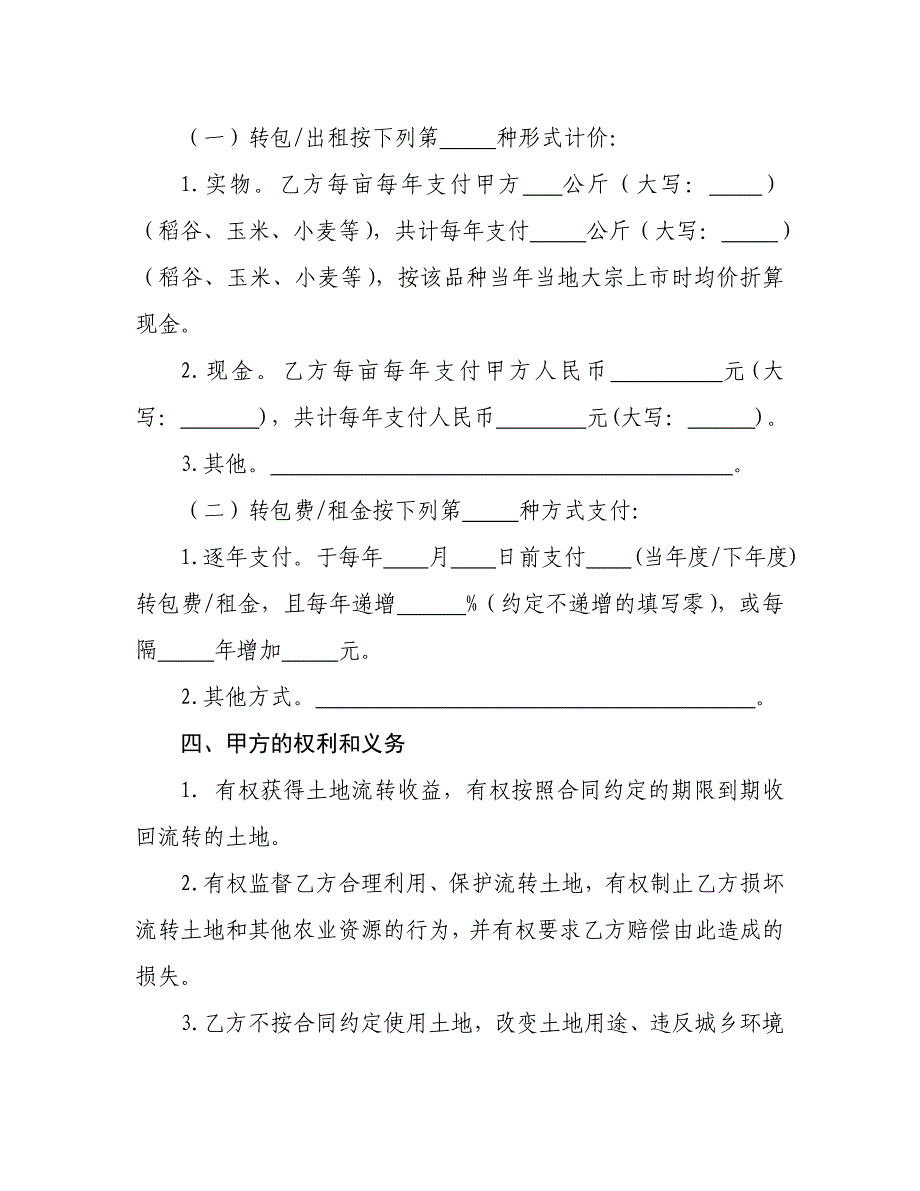 （一）转包/出租按下列第_____种形式计价：
1.实物。乙方每亩每年支付甲方____公斤（大写：_____）
（稻谷、玉米、小麦等），共计每年支付_____公斤（大写：_____）
（稻谷、玉米、小麦等），按该品种当年当地大宗上市时均价折算
现金。
2.现金。乙方每亩每年支付甲方人民币__________元(大
写：_______)，共计每年支付人民币________元(大写：______)。
3.其他。_________________________________________。
（二）转包费/租金按下列第_____种方式支付：
1.逐年支付。于每年____月____日前支付____(当年度/下年度)
转包费/租金，且每年递增______%（约定不递增的填写零），或每
隔_____年增加_____元。
2.其他方式。_______________________________________。
四、甲方的权利和义务
1. 有权获得土地流转收益，有权按照合同约定的期限到期收
回流转的土地。
2.有权监督乙方合理利用、保护流转土地，有权制止乙方损坏
流转土地和其他农业资源的行为，并有权要求乙方赔偿由此造成的
损失。
3.乙方不按合同约定使用土地，改变土地用途、违反城乡环境